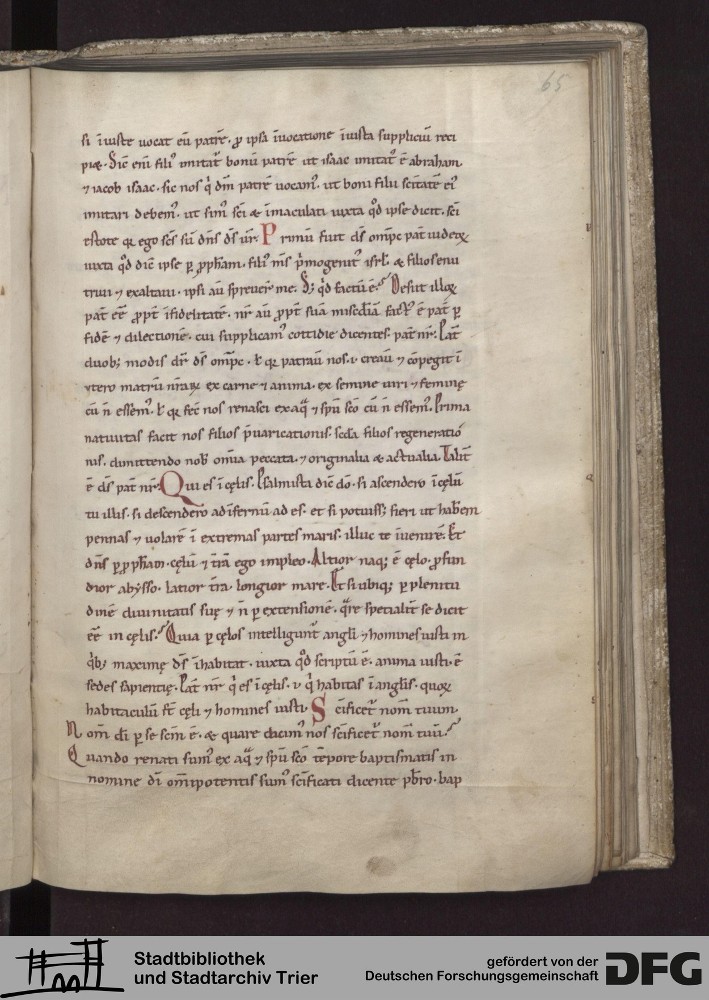 65
si iuiste uocat eū patrē. ꝓ ipsa īuocatione īuista suppliciū reci
piæ. Sic eni filiꝰ imitat᷑ bonū patrē ut isaac imitatꝰ ē abraham.
⁊ iacob isaac. sic nos q̇ dm̄ patrē uocamꝰ. ut boni filii sc̄itatē eiꝰ
imitari debemꝰ. ut simꝰ sc̄i & īmaculati iuxta qd̄ ipse dicit. sc̄i
estote qr ego sc̄s sū dn̄s ds̄ ur̄. Primū fuit ds̄ om̄pc pat̄ iudeoꝝ
iuxta qd̄ dic̄ ipse ꝑ ꝓpham. filiꝰ ms̄ pͥmogenitꝰ isrl̄. & filios enu
triui ⁊ exaltaui. ipsi aū spreuer̄ me. S; qd̄ factū ē. Desiit illoꝝ
pat̄ eē ꝓpt̄ īfidelitatē. nr̄ aū ꝓpt̄ suā misc̄diā factꝰ ē pat̄ ꝑ
fidē ⁊ dilectionē. cui supplicamꝰ cottidie dicentes. pat̄ nr̄. Pat̄
duob; modis dr̄ ds̄ om̄pc. ł qr patrauit nos. ⁊ creauit ⁊ cōpegit ī
utero matrū nr̄aꝝ ex carne ⁊ anima. ex semine uiri ⁊ feminę
cū n̄ essemꝰ. ł qr fec̄ nos renasci ex aq̄ ⁊ spū sc̄o cū n̄ essemꝰ. Prima
natiuitas facit nos filios p̄uaricationis. sc̄da filios regeneratiō
nis. dimittendo nob̄ omīa peccata. ⁊ originalia & actualia. Talit̄
ē ds̄ pat̄ nr̄. Qui es ī cęlis. Psalmista dic̄ dō. si ascendero ī cęlū
tu illic. si descendero ad infernū ad es. et si potuiss; fieri ut hab̄em
pennas ⁊ uolarē ī extremas partes maris. illuc te īuenirē. Et
dn̄s ꝑ ꝓpham. cęlū ⁊ tr̄ā ego impleo. Altior naq; ē cęlo. ꝓfun
dior abysso. latior tr̄a. longior mare. Et si ubiq; ꝑ plenitu
dinē diuinitatis suę ⁊ n̄ ꝑ extensionē. qͣre specialit̄ se dicit
eē in cęlis. Quia ꝑ cęlos intelligunt᷑ angli ⁊ homines iusti in
qͥb; maximę ds̄ īhabitat. iuxta qd̄ scriptū ē. anima iusti ē
sedes sapientię. Pat̄ nr̄ qͥ es ī cęlis. ⁊ qͥ habitas ī anglis. quoꝝ
habitaculū st̄ cęli ⁊ homines iusti. Sc̄ificet᷑ nom̄ tuum.
Nom̄ di ꝑ se sc̄m ē. & quare dicimꝰ nos sc̄ificet᷑ nom̄ tuū.
Quando renati sumꝰ ex aq̄ ⁊ spū sc̄o tēpore baptismatis in
nomine di om̄ipotentis sumꝰ sc̄ificati dicente pbr̄o. bap
Stadtbibliothek
und Stadtarchiv Trier
gefördert von der
Deutschen Forschungsgemeinschaft
DFG